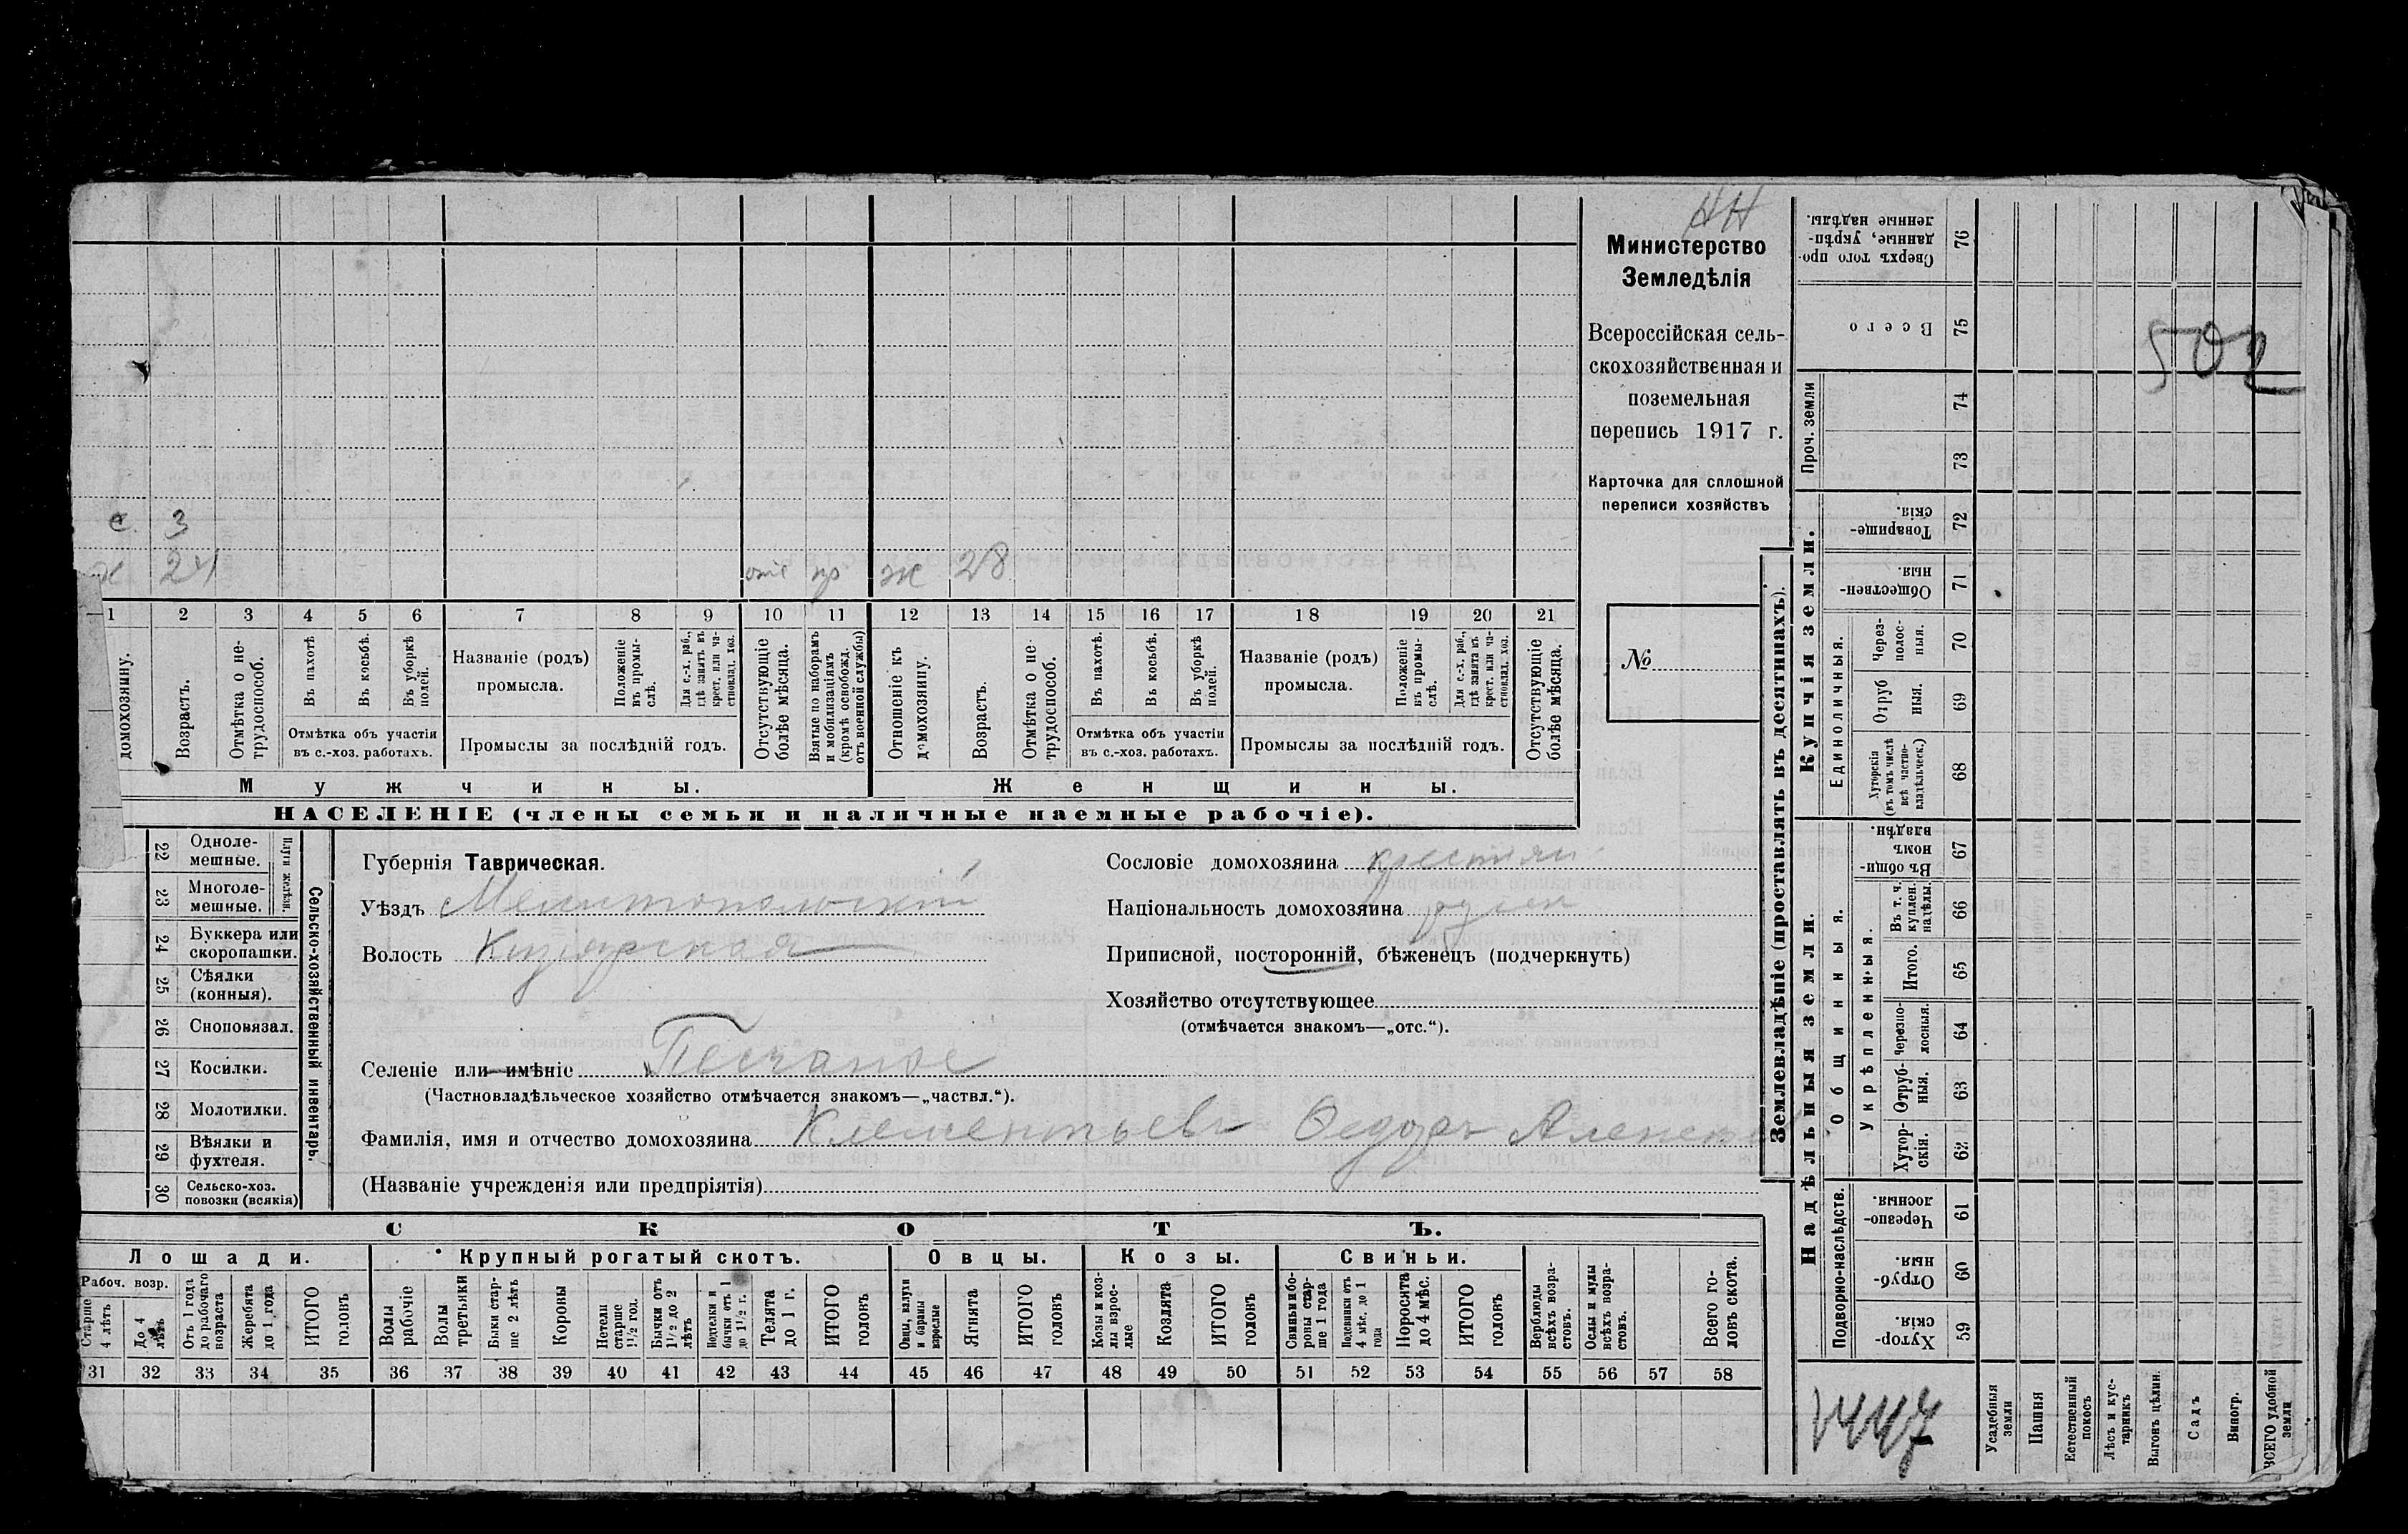 НН
Министерство
Земледѣлія
Всероссійская сель-
скохозяйственная и
поземельная
перепись 1917 г.
Карточка для сплошной
переписи хозяйствъ
№
с. 3
х 24 отс ж 28
1 2 3 4 5 6 7 8 9 10 11 12 13 14 15 16 17 18 19 20 21
домохозяину.
Возрастъ.
Отмѣтка о не-
трудоспособ.
Въ пахотѣ
Въ косьбѣ.
Въ уборкѣ
полей.
Отмѣтка объ участіи
въ с.-хоз. работахъ.
Названіе (родъ)
промысла.
Положеніе
въ промы-
слѣ.
Для с.-х. раб.,
гдѣ занятъ въ
крест. или ча-
стновлад. хоз.
Промыслы за послѣдній годъ.
Отсутствующіе
болѣе мѣсяца.
Взятые по наборамъ
и мобилизаціямъ
(кромѣ освобожд.
отъ военной службы)
Отношеніе къ
домохозяину.
Возрастъ.
Отмѣтка о не-
трудоспособ.
Въ пахотѣ.
Въ косьбѣ.
Въ уборкѣ
полей.
Отмѣтка объ участіи
въ с.-хоз. работахъ.
Названіе (родъ)
промысла.
Положеніе
въ промы-
слѣ.
Для с.-х. раб.,
гдѣ занята въ
крест. или ча-
стновлад. хоз.
Промыслы за послѣдній годъ.
Отсутствующіе
болѣе мѣсяца.
Мужчины. Женщины.
НАСЕЛЕНІЕ (члены семьи и наличные наемные рабочіе).
22 Одноле-
мешные.
Плуги желѣзн.
23 Многоле-
мешные.
24 Буккера или
скоропашки.
25 Сѣялки
(конныя).
26 Сноповязал.
27 Косилки.
28 Молотилки.
29 Вѣялки и
фухтеля.
30 Сельско-хоз.
повозки (всякія)
Сельско-хозяйственный инвентарь.
Губернія Таврическая.
Уѣздъ Мелитопольскій
Волость Кизіярская
Селеніе или имѣніе Песчаное
(Частновладѣльческое хозяйство отмѣчается знакомъ—„частвл.“).
Фамилія, имя и отчество домохозяина Клементьевъ Ѳедоръ
(Названіе учрежденія или предпріятія)
Сословіе домохозяина крестьян
Національность домохозяина русск
Приписной, посторонній, бѣженецъ (подчеркнуть)
Хозяйство отсутствующее
(отмѣчается знакомъ—„отс.“).
СКОТЪ.
Лошади. Крупный рогатый скотъ. Овцы. Козы. Свиньи.
Рабоч. возр.
Старше
4 лѣтъ
До 4
лѣтъ
Отъ 1 года
до рабочаго
возраста
Жеребята
до 1 года
ИТОГО
головъ
Волы
рабочіе
Волы
третьяки
Быки стар-
ше 2 лѣтъ
Коровы
Нетели
старше
1½ год.
Бычки отъ
1½ до 2
лѣтъ
Подтелки и
бычки отъ 1
до 1½ г.
Телята
до 1 г.
ИТОГО
головъ
Овцы, валухи
и бараны
взрослые
Ягнята
ИТОГО
головъ
Козы и коз-
лы взрос-
лые
Козлята
ИТОГО
головъ
Свиньи и бо-
ровы стар-
ше 1 года
Подсвинки отъ
4 мѣс. до 1
года
Поросята
до 4 мѣс.
ИТОГО
головъ
Верблюды
всѣхъ возра-
стовъ.
Ослы и мулы
всѣхъ возра-
стовъ.
Всего го-
ловъ скота.
31 32 33 34 35 36 37 38 39 40 41 42 43 44 45 46 47 48 49 50 51 52 53 54 55 56 57 58
Землевладѣніе (проставлять въ десятинахъ).
Купчія земли.
Надѣльныя земли.
Сверхъ того про-
данные, укрѣп-
ленные надѣлы.
76
Всего
75
Проч. земли
74
73
Товарище-
скія.
72
Обществен-
ныя.
71
Единоличныя.
Через-
полос-
ныя.
70
Отруб
ныя.
69
Хуторскія
(въ томъ числѣ
всѣ частно-
владѣльческ.)
68
Общинныя.
Въ общи-
номъ
владѣн.
67
Укрѣпленныя.
Въ т. ч.
куплен.
надѣлы.
66
Итого.
65
Черезпо-
лосныя.
64
Отруб-
ныя.
63
Хутор-
скія.
62
Подворно-наслѣдств.
Черезпо-
лосныя.
61
Отруб-
ныя.
60
Хутор-
скія.
59
Усадебныя
земли
Пашня
Естественный
покосъ
Лѣсъ и кус-
тарникъ
Выгонъ цѣлин.
Садъ
Виногр.
ВСЕГО удобной
земли
502
1447